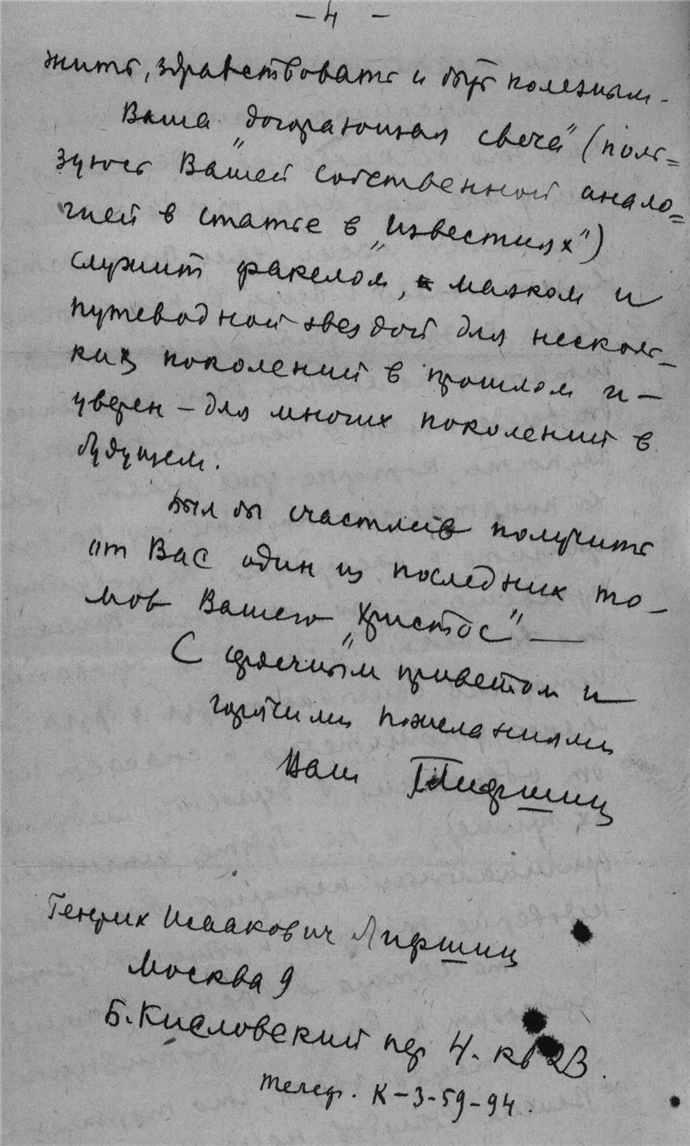 – 4 –
жить, здравствовать и быть полезным.
Ваша „догорающая свеча" (поль=
зуюсь Вашей собственной анало=
гией в статье в „Известиях")
служит факелом, маяком и
путеводной звездой для несколь–
ких поколений в прошлом и –
уверен – для многих поколений в
будущем.
Был бы счастлив получить
от Вас один из последних то–
мов Вашего „Христос" —
С сердечным приветом и
горячими пожеланиями
Ваш ГЛифшиц
Генрих Исаакович Лифшиц
Москва 9
Б. Кисловский пер 4. кв 2В.
телеф. К–3–59–94.